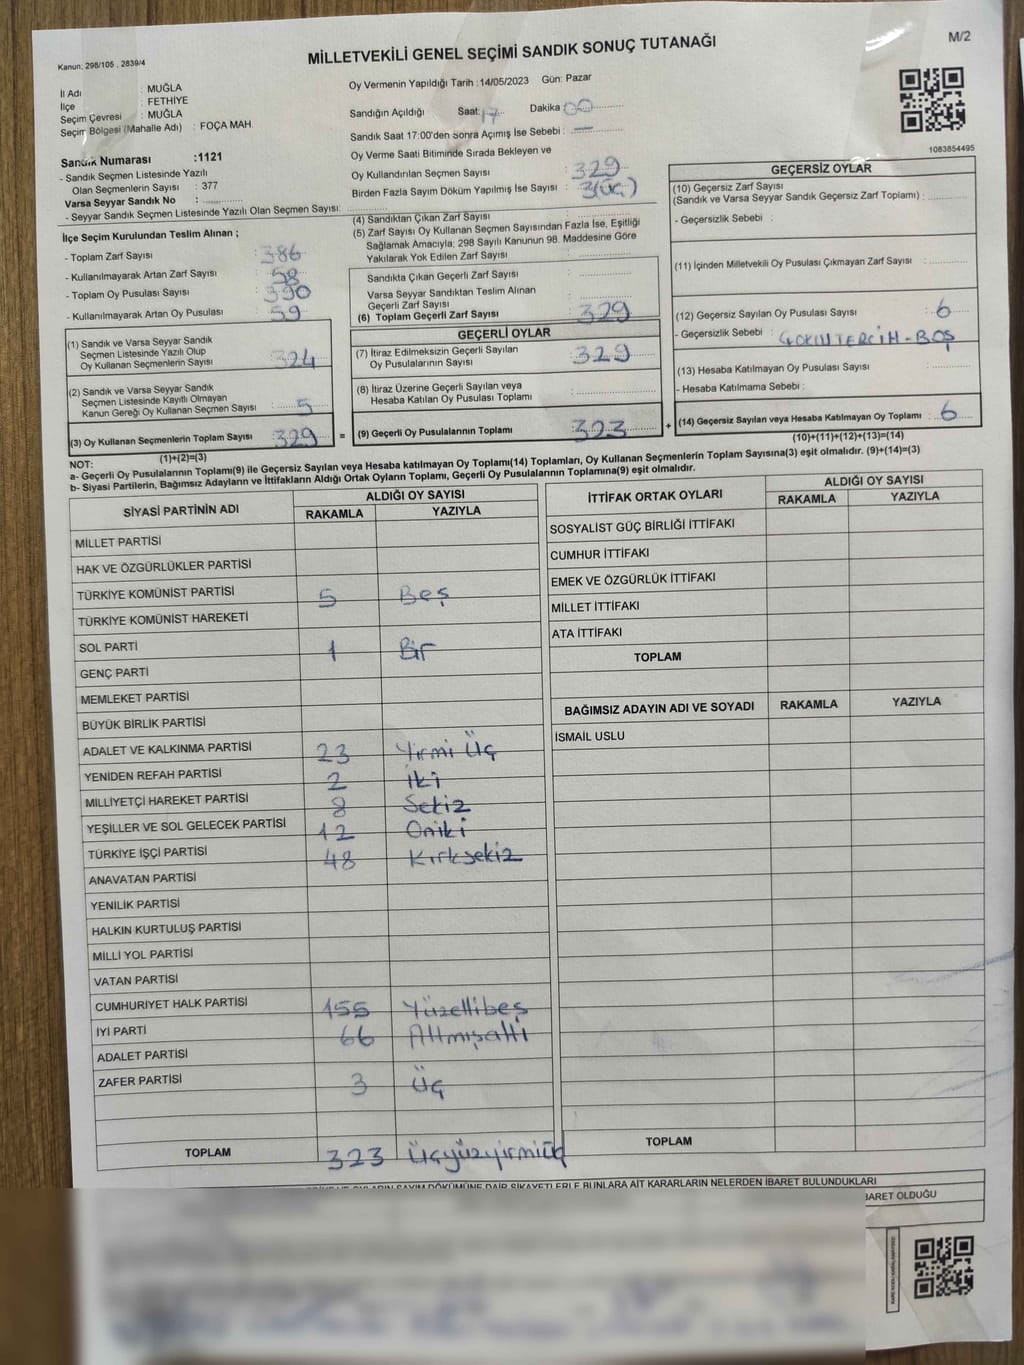 M/2
MİLLETVEKİLİ GENEL SEÇİMİ SANDIK SONUÇ TUTANAĞI
Kanun: 298/105 , 2839/4
İl Adı : MUĞLA
İlçe : FETHİYE
Seçim Çevresi : MUĞLA
Seçim Bölgesi (Mahalle Adı) : FOÇA MAH.
Sandık Numarası :1121
- Sandık Seçmen Listesinde Yazılı
Olan Seçmenlerin Sayısı : 377
Varsa Seyyar Sandık No :
- Seyyar Sandık Seçmen Listesinde Yazılı Olan Seçmen Sayısı:
Oy Vermenin Yapıldığı Tarih :14/05/2023 Gün: Pazar
Sandığın Açıldığı Saat: 17 Dakika : 00
Sandık Saat 17:00'den Sonra Açımış İse Sebebi : —
Oy Verme Saati Bitiminde Sırada Bekleyen ve
Oy Kullandırılan Seçmen Sayısı : 329
Birden Fazla Sayım Döküm Yapılmış İse Sayısı : 3(ÜÇ)
1083854495
İlçe Seçim Kurulundan Teslim Alınan ;
- Toplam Zarf Sayısı : 386
- Kullanılmayarak Artan Zarf Sayısı : 58
- Toplam Oy Pusulası Sayısı : 390
- Kullanılmayarak Artan Oy Pusulası : 59
(1) Sandık ve Varsa Seyyar Sandık
Seçmen Listesinde Yazılı Olup
Oy Kullanan Seçmenlerin Sayısı : 324
(2) Sandık ve Varsa Seyyar Sandık
Seçmen Listesinde Kayıtlı Olmayan
Kanun Gereği Oy Kullanan Seçmen Sayısı : 5
(3) Oy Kullanan Seçmenlerin Toplam Sayısı : 329
(1)+(2)=(3)
(4) Sandıktan Çıkan Zarf Sayısı :
(5) Zarf Sayısı Oy Kullanan Seçmen Sayısından Fazla İse, Eşitliği
Sağlamak Amacıyla; 298 Sayılı Kanunun 98. Maddesine Göre
Yakılarak Yok Edilen Zarf Sayısı :
Sandıkta Çıkan Geçerli Zarf Sayısı :
Varsa Seyyar Sandıktan Teslim Alınan
Geçerli Zarf Sayısı :
(6) Toplam Geçerli Zarf Sayısı : 329
GEÇERLİ OYLAR
(7) İtiraz Edilmeksizin Geçerli Sayılan
Oy Pusulalarının Sayısı : 329
(8) İtiraz Üzerine Geçerli Sayılan veya
Hesaba Katılan Oy Pusulası Toplamı :
= (9) Geçerli Oy Pusulalarının Toplamı : 323
GEÇERSİZ OYLAR
(10) Geçersiz Zarf Sayısı
(Sandık ve Varsa Seyyar Sandık Geçersiz Zarf Toplamı) :
- Geçersizlik Sebebi :
(11) İçinden Milletvekili Oy Pusulası Çıkmayan Zarf Sayısı :
(12) Geçersiz Sayılan Oy Pusulası Sayısı : 6
- Geçersizlik Sebebi : ÇOKLU TERCİH - BOŞ
(13) Hesaba Katılmayan Oy Pusulası Sayısı :
- Hesaba Katılmama Sebebi :
+ (14) Geçersiz Sayılan veya Hesaba Katılmayan Oy Toplamı : 6
(10)+(11)+(12)+(13)=(14)
NOT:
a- Geçerli Oy Pusulalarının Toplamı(9) ile Geçersiz Sayılan veya Hesaba katılmayan Oy Toplamı(14) Toplamları, Oy Kullanan Seçmenlerin Toplam Sayısına(3) eşit olmalıdır. (9)+(14)=(3)
b- Siyasi Partilerin, Bağımsız Adayların ve İttifakların Aldığı Ortak Oyların Toplamı, Geçerli Oy Pusulalarının Toplamına(9) eşit olmalıdır.
SİYASİ PARTİNİN ADI ALDIĞI OY SAYISI
RAKAMLA YAZIYLA
MİLLET PARTİSİ
HAK VE ÖZGÜRLÜKLER PARTİSİ
TÜRKİYE KOMÜNİST PARTİSİ 5 Beş
TÜRKİYE KOMÜNİST HAREKETİ
SOL PARTİ 1 Bir
GENÇ PARTİ
MEMLEKET PARTİSİ
BÜYÜK BİRLİK PARTİSİ
ADALET VE KALKINMA PARTİSİ 23 Yirmi Üç
YENİDEN REFAH PARTİSİ 2 İki
MİLLİYETÇİ HAREKET PARTİSİ 8 Sekiz
YEŞİLLER VE SOL GELECEK PARTİSİ 12 Oniki
TÜRKİYE İŞÇİ PARTİSİ 48 Kırksekiz
ANAVATAN PARTİSİ
YENİLİK PARTİSİ
HALKIN KURTULUŞ PARTİSİ
MİLLİ YOL PARTİSİ
VATAN PARTİSİ
CUMHURİYET HALK PARTİSİ 155 Yüzellibeş
İYİ PARTİ 66 Altmışaltı
ADALET PARTİSİ
ZAFER PARTİSİ 3 Üç
TOPLAM 323 Üçyüzyirmiüç
İTTİFAK ORTAK OYLARI ALDIĞI OY SAYISI
RAKAMLA YAZIYLA
SOSYALİST GÜÇ BİRLİĞİ İTTİFAKI
CUMHUR İTTİFAKI
EMEK VE ÖZGÜRLÜK İTTİFAKI
MİLLET İTTİFAKI
ATA İTTİFAKI
TOPLAM
BAĞIMSIZ ADAYIN ADI VE SOYADI RAKAMLA YAZIYLA
İSMAİL USLU
TOPLAM
OYLARIN SAYIM DÖKÜMÜNE DAİR ŞİKAYETLERLE BUNLARA AİT KARARLARIN NELERDEN İBARET BULUNDUKLARI
İBARET OLDUĞU